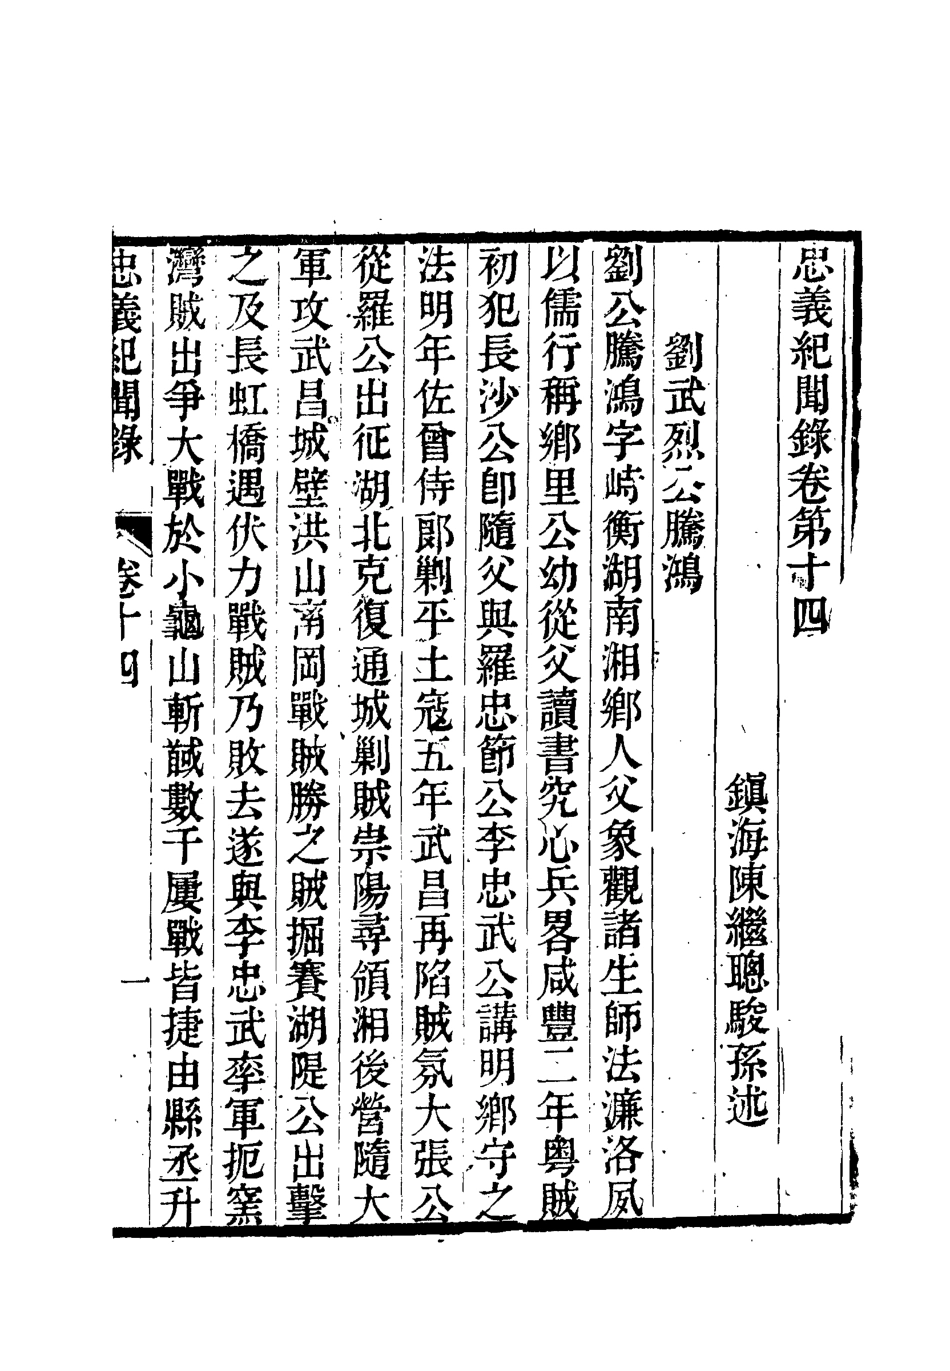 忠義紀聞錄卷第十四
鎮海陳繼聰駿孫述
劉武烈公騰鴻
劉公騰鴻字峙衡湖南湘鄉人父象觀諸生師法濂洛夙
以儒行稱鄉里公幼從父讀書究心兵畧咸豐二年粵賊
初犯長沙公卽隨父與羅忠節公李忠武公講明鄉守之
法明年佐曾侍郞剿平土寇五年武昌再陷賊氛大張公
從羅公出征湖北克復通城剿賊崇陽尋領湘後營隨大
軍攻武昌城壁洪山南岡戰賊勝之賊掘賽湖隄公出擊
之及長虹橋遇伏力戰賊乃敗去遂與李忠武率軍扼窯
灣賊出爭大戰於小龜山斬馘數千屢戰皆捷由縣丞升
忠義紀聞錄 卷十四 一